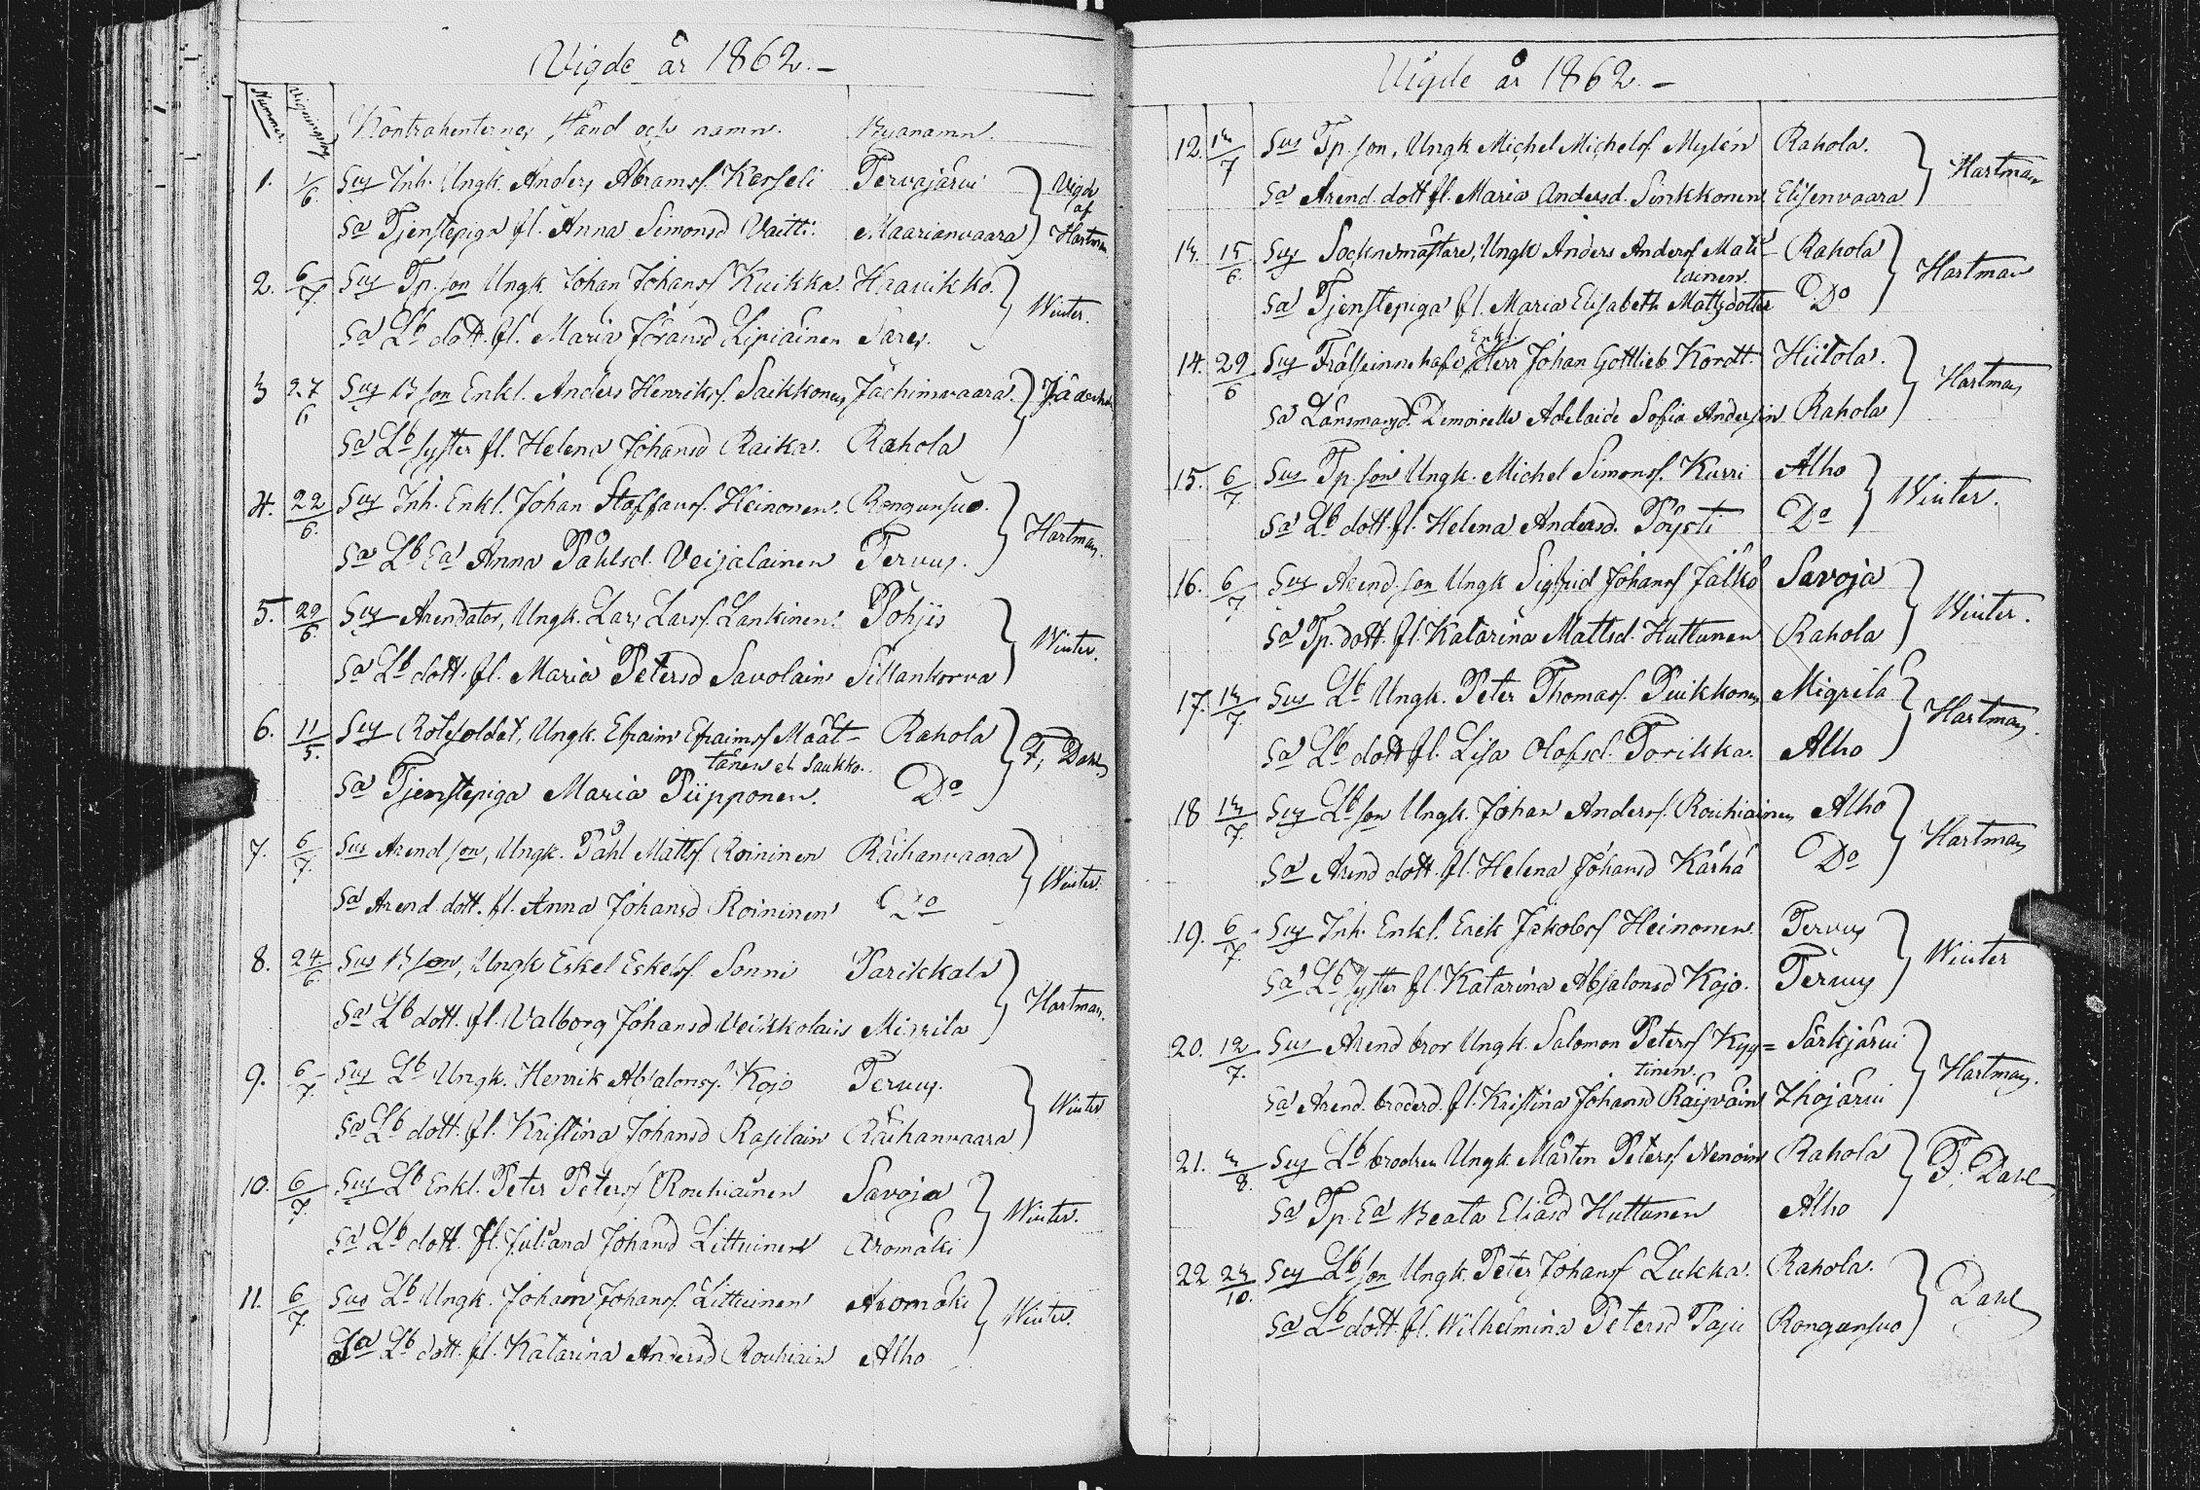 Vigde år 1862.-
Nummer Vigningsdag Kontrahenternes stånd och namn. Byanamn.
1. 1/6 Sus Inh. Ungk. Anders Abramsf. Karseli Tervajärvi Vigde af Hartman
Sa Tjenstepiga fl. Anna Simonsd Vaitti. Maarianvaara
2. 6/7 Sus Tp. son Ungk. Johan Johansf Kuikka. Haavikko. Winter.
Sa Lb dott. fl. Maria Göransd Lipiäinen Sares.
3 27/6 Sus B son Enkl. Anders Henriksf. Saikkonen Jächimvaara.
Sa Lb syster fl. Helena Johansd Raika. Rahola
4. 22/6. Sus Inh. Enkl. Johan Staffansf. Heinonen. Rongunsuo. Hartman.
Sa Lb Ea Anna Påhlsd. Veijalainen Tervus.
5. 29/6 Sus Arendator, Ungk. Lars Larsf. Lankinen. Pohjis Winter.
Sa Lb dott. fl. Maria Petersd Savolain Sillankorva
6. 11/5. Sus Rotesoldat, Ungk. Efraim Efraimsf Määt- Rahola F. Dahl
tänen el. Saukko.
Sa Tjenstepiga Maria Piipponen. Do
7. 6/7. Sus Arend son, Ungk. Påhl Mattsf Roininen Räihänvaara Winter.
Sa Arend. dott. fl. Anna Johansd Roininen Do
8. 24/6 Sus B son, Ungk Eskel Eskelsf. Sonni Parikkala Hartman.
Sa Lb dott. fl. Valborg Johansd Veikkolain Miinila
9. 6/7. Sus Lb Ungk. Henrik Absalonsf. Kojo Tervus. Winter
Sa Lb dott. fl. Kristina Johansd Rasilain Räihänvaara
10. 6/7. Sus Lb Enkl. Peter Petersf Rouhiainen Savoja Winter.
Sa Lb dott. fl. Juliana Johansd Littuinen Aromäki
11. 6/7. Sus Lb Ungk. Johan Johansf. Littuinen Aromäki Winter.
Sa Lb dott. fl. Katarina Andersd Rouhiain Alho
Vigde år 1862.-
12. 13/7 Sus Tp. son, Ungk. Michel Michelsf Mylén Rahola. Hartman
Sa Arend. dott fl. Maria Andersd. Sinkkonen Elisenvaara
13. 15/6 Sus Socknemästare, Ungk Anders Andersf Mati- Rahola Hartman
lainen.
Sa Tjenstepiga fl. Maria Elisabeth Mattsdotter Do
14. 29/6 Sus Frälseinnehafv. Enkl. Herr Johan Gottlieb Kordt. Hiitola. Hartman
Sa Länsmansd. Demoiselle Adelaide Sofia Andersin Rahola
15. 6/7. Sus Tp son Ungk. Michel Simonsf. Kurri Alho Winter.
Sa Lb dott. fl. Helena Andersd. Pöysti Do
16. 6/7. Sus Arend. son Ungk Sigfrid Johansf Jälkö Savoja Winter.
Sa Tp. dott. fl. Katarina Mattsd. Huttunen Rahola
17. 13/7 Sus Lb Ungk. Peter Thomasf. Puikkonen Hartman.
Sa Lb dott fl. Lisa Olofsd. Torikka. Alho
18 13/7. Sus Lb son Ungk. Johan Andersf. Rouhiainen Alho Hartman
Sa Arend dott. fl. Helena Johansd Kärhä Do
19. 6/7. Sus Inh. Enkl. Erik Jakobsf Heinonen. Tervus Winter
Sa Lb syster fl. Katarina Absalonsd Kojo. Tervus
20. 12/7. Sus Arend bror Ungk. Salomon Petersf Kyy= Särkjärvi Hartman.
tinen.
Sa Arend. broderd. fl. Kristina Johansd Räisväin Ihojärvi
21. 3/8. Sus Lb broder Ungk. Mårten Petersf Nenoin Rahola F. Dahl
Sa Tp. Ea Beata Eliasd Huttunen Alho
22 23/10. Sus Lb son Ungk. Peter Johansf Lukka. Rahola. Dahl
Sa Lb dott. fl. Wilhelmina Petersd Paju Rongunsuo